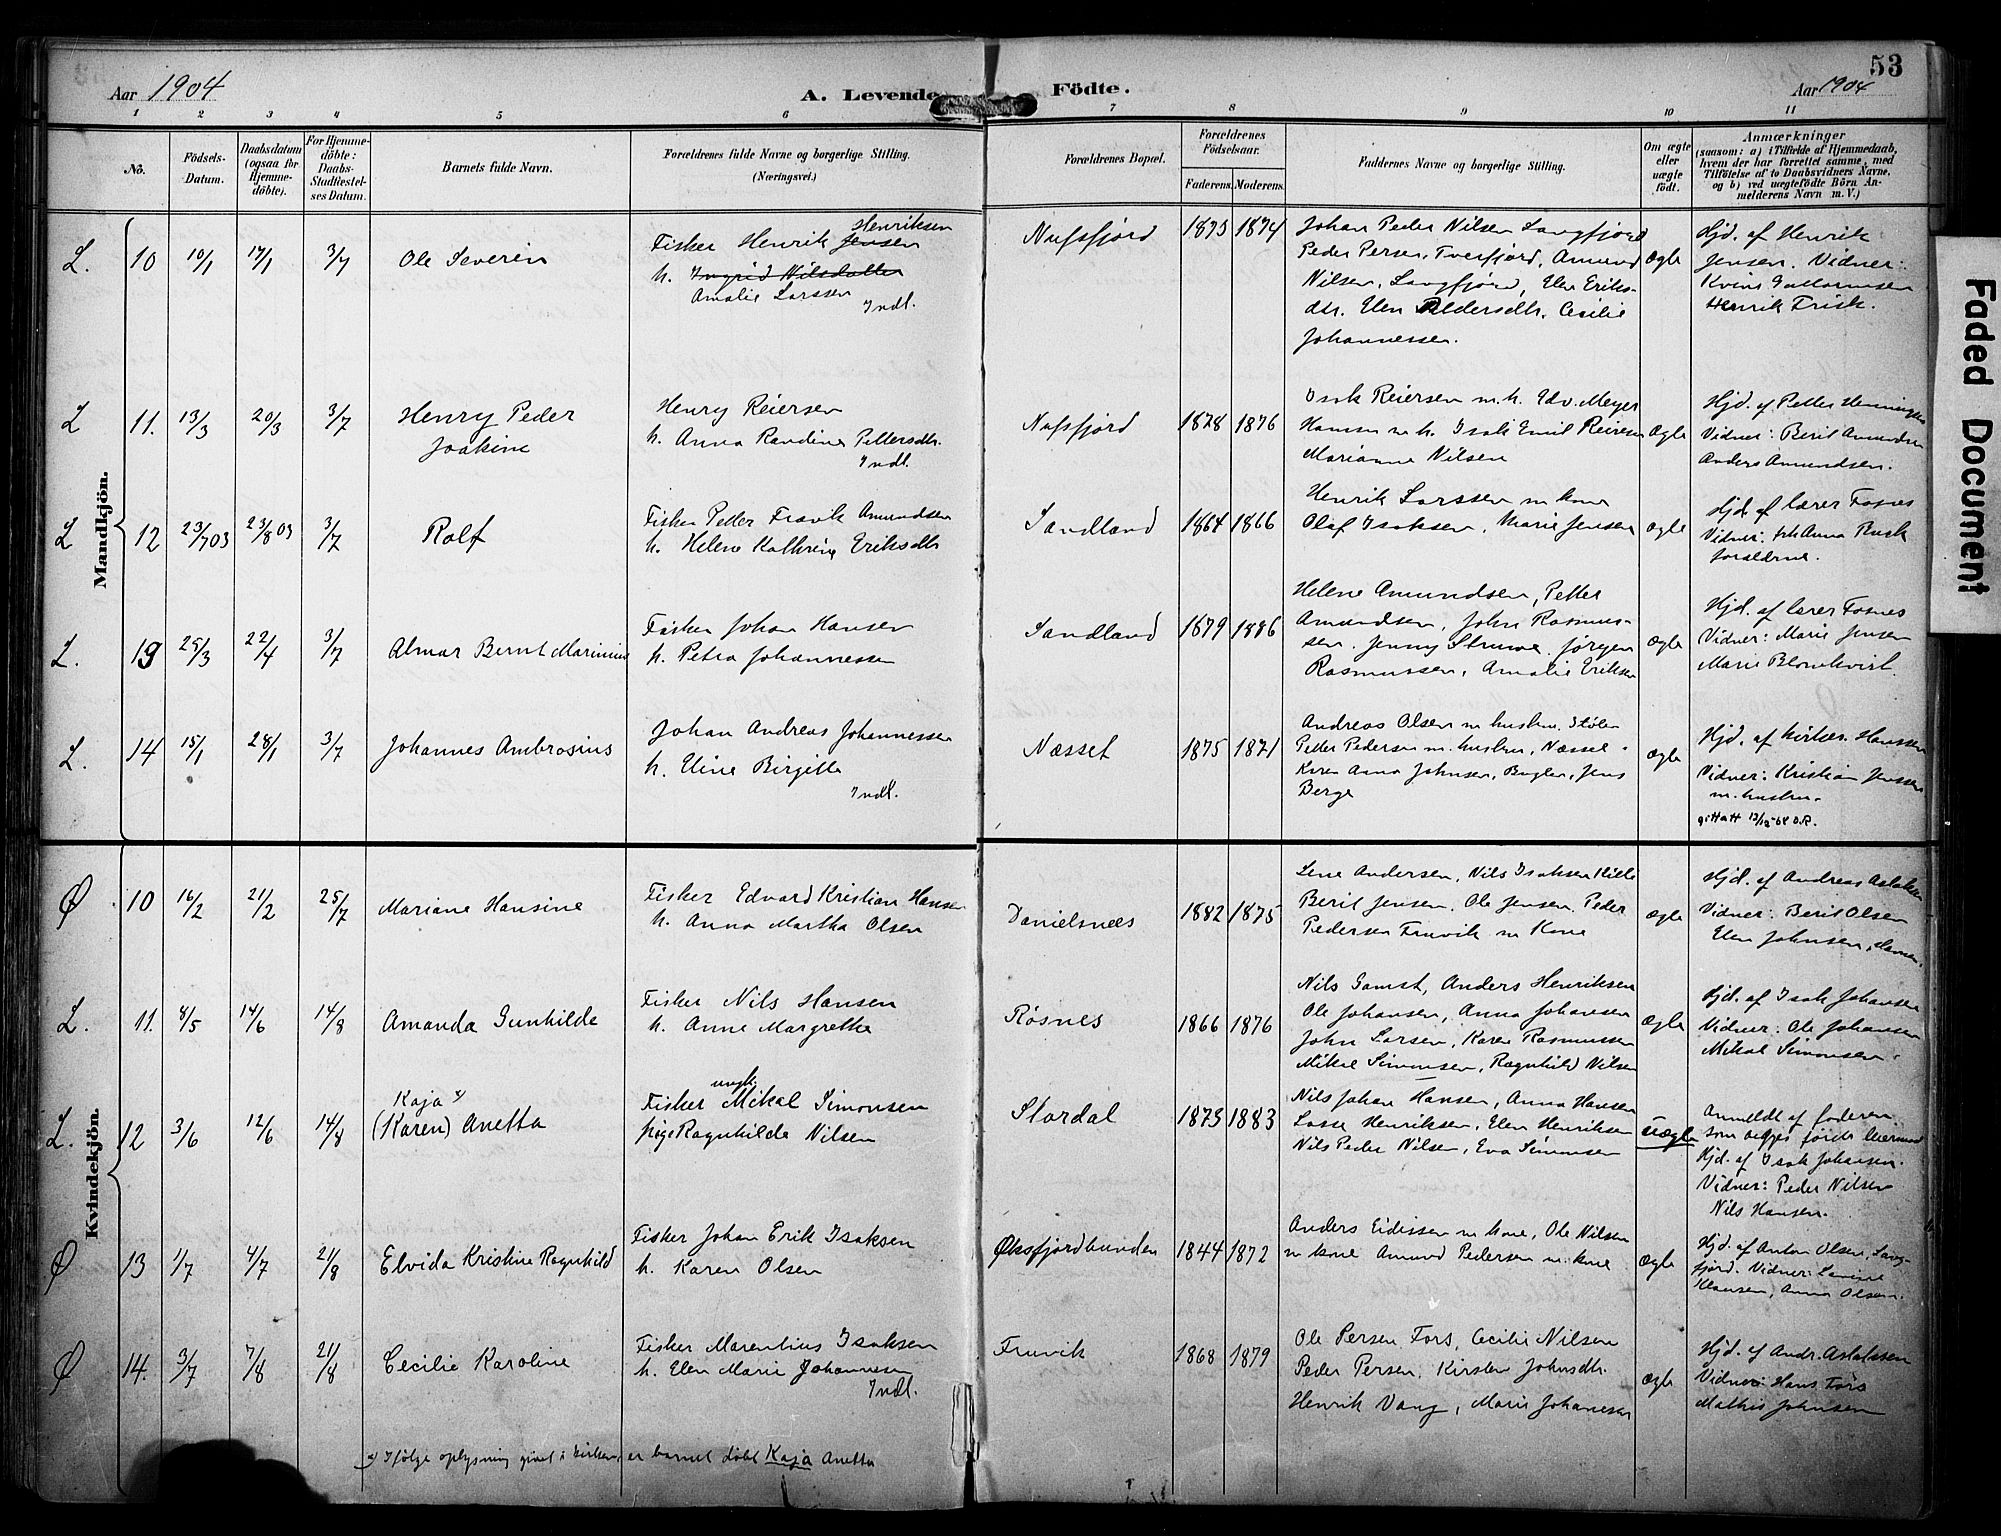 53
Aar 1904
A. Levende Födte.
Aar 1904
1 2 3 4 5 6 7 8 9 10 11
No.
Födsels-
Datum.
Daabsdatum
(ogsaa for
Hjemme-
döbte).
For Hjemme-
döbte:
Daabs-
Stadfæstel-
ses Datum.
Barnets fulde Navn.
Forældrenes fulde Navne og borgerlige Stilling.
(Næringsvei.)
Forældrenes Bopæl.
Forældrenes
Födselsaar.
Faderens. Moderens.
Faddernes Navne og borgerlige Stilling.
Om ægte
eller
uægte
født.
Anmærkninger
(saasom: a) i Tilfælde af Hjemmedaab,
hvem der har forrettet samme, med
Tilføielse af to Daabsvidners Navne,
og b) ved uægtefödte Börn An-
melderens Navn m. V.)
Mandkjön.
L. 10 10/1 17/1 3/7 Ole Severin
Fisker Henrik Jensen Henriksen
h. Ingrid Nilsdatter
Amalie Larssen
Indl.
Nufsfjord 1873 1874
Johan Peder Nilsen Langfjord
Peder Persen, Tverfjord, Amund
Nilsen, Langfjord, Elen Eriks-
dtr. Elen Pedersdtr. Cecilie
Johannessen.
Ægte
Hjd. af Henrik
Jensen. Vidner:
Henrik Frisk.
L 11. 13/3 20/3 3/7 Henry Peder
Joakim
Henry Reiersen
h. Anna Randine Pettersdtr.
Indl.
Nufsfjord 1878 1876
Isak Reiersen m. h. Edv. Meyer
Hansen m h. Isak Emil Reiersen
Marianne Nilsen
Ægte
Hjd. af Petter Henningsen
Vidner: Berit Amundsen
Anders Amundsen.
L 12 23/7 03 23/8 03 3/7 Rolf
Fisker Petter Fravik Amundsen
h. Helene Kathrine Eriksdtr
Sandland 1864 1866
Henrik Larssen m kone
Olaf Isaksen, Marie Jensen
ægte
Hjd. af lærer Fosnes
Vidner: Anna Rusk
forældrene.
L. 13 25/3 22/4 3/7 Almar Bernt Marinius
Fisker Johan Hansen
h. Petra Johannessen
Sandland 1879 1886
Helene Amundsen, Petter
Amundsen, John Rasmus-
sen. Jenny Struwe. Jørgen
Rasmussen, Amalie Eriksen
Ægte
Hjd. af lærer Fosnes
Vidner: Marie Jensen
Marie Blomkvist.
L. 14 15/1 28/1 3/7 Johannes Ambrosius
Johan Andreas Johannessen
h. Eline Birgitte
Indl.
Næsset 1875 1871
Andreas Olsen m hustru.
Petter Pedersen m. hustru, Næsset.
Karen Anna Johnsen, Jens
Berge
Ægte
Hjd. af kirkes. Hanssen
Vidner: Kristian Jenssen
m. hustru.
Kvindekjön.
Ø 10 16/2 21/2 25/7 Mariane Hansine
Fisker Edvard Kristian Hansen
h. Anna Martha Olsen
Danielsnæs 1882 1875
Lene Andersen, Nils Isaksen
Berit Jensen, Ole Jensen. Peder
Pedersen Fruvik m Kone
ægte
Hjd. af Andreas Aslaksen
Vidner: Berit Olsen
Elen Johnsen,
L. 11. 8/5 14/6 14/8 Amanda Gunhilde
Fisker Nils Hansen
h. Anne Margrethe
Røsnes 1866 1876
Nils Gamst, Anders Henriksen
Ole Johansen, Anna Johansen
John Larsen, Karen Rasmussen
Mikal Simonsen, Ragnhild Nilsen
Ægte
Hjd. af Isak Johansen
Vidner: Ole Johansen
Mikal Simonsen.
L. 12 3/6 12/6 14/8 Kaja x)
(Karen) Anetta
ungk.
Fisker Mikal Simonsen
pige Ragnhilde Nilsen
Stordal 1873 1883
Nils Johan Hansen, Anna Hansen
Lasse Henriksen, Elen Henriksen
Nils Peder Nilsen, Eva Simonsen
uægte
Anmeldt af faderen
som begges første leiermaal
Hjd. af Isak Johansen.
Vidner: Peder Nilsen
Nils Hansen.
Ø 13 1/7 4/7 21/8 Elvida Kristine Ragnhild
Fisker Johan Erik Isaksen
h. Karen Olsen
Øksfjordbunden 1844 1872
Anders Eidissen m kone, Ole Nilsen
m kone Amund Pedersen m. kone
Ægte
Hjd. af Anton Olsen, Lang-
fjord. Vidner: Lavine
Klausen, Anna Olsen.
Ø 14. 3/7 7/8 21/8 Cecilie Karoline
Fisker Marentius Isaksen
h. Elen Marie Johannesen
Indl.
Fruvik 1868 1879
Ole Persen Fors, Cecilie Nilsen
Peder Persen. Kirsten Johnsdtr.
Henrik Vang, Marie Johanesen
ægte
Hjd. af Andr. Aslaksen
Vidner: Hans Fors
Mathis Johnsen
x) Ifølge oplysning givet i kirken, er barnet døbt Kaja Anetta
Faded Document